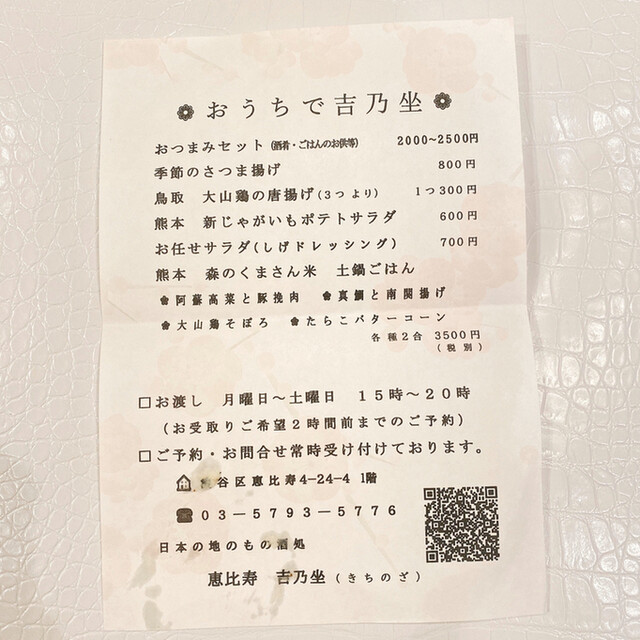 おうちで吉乃坐
おつまみセット(酒肴・ごはんのお供等) 2000~2500円
季節のさつま揚げ 800円
鳥取 大山鶏の唐揚げ(3つより) 1つ300円
熊本 新じゃがいもポテトサラダ 600円
お任せサラダ(しげドレッシング) 700円
熊本 森のくまさん米 土鍋ごはん
阿蘇高菜と豚挽肉 真鯛と南関揚げ
大山鶏そぼろ たらこバターコーン
各種2合 3500円
(税別)
□お渡し 月曜日~土曜日 15時~20時
(お受取りご希望2時間前までのご予約)
□ご予約・お問合せ常時受け付けております。
谷区恵比寿4-24-4 1階
☎03-5793-5776
日本の地のもの酒処
恵比寿 吉乃坐(きちのざ)